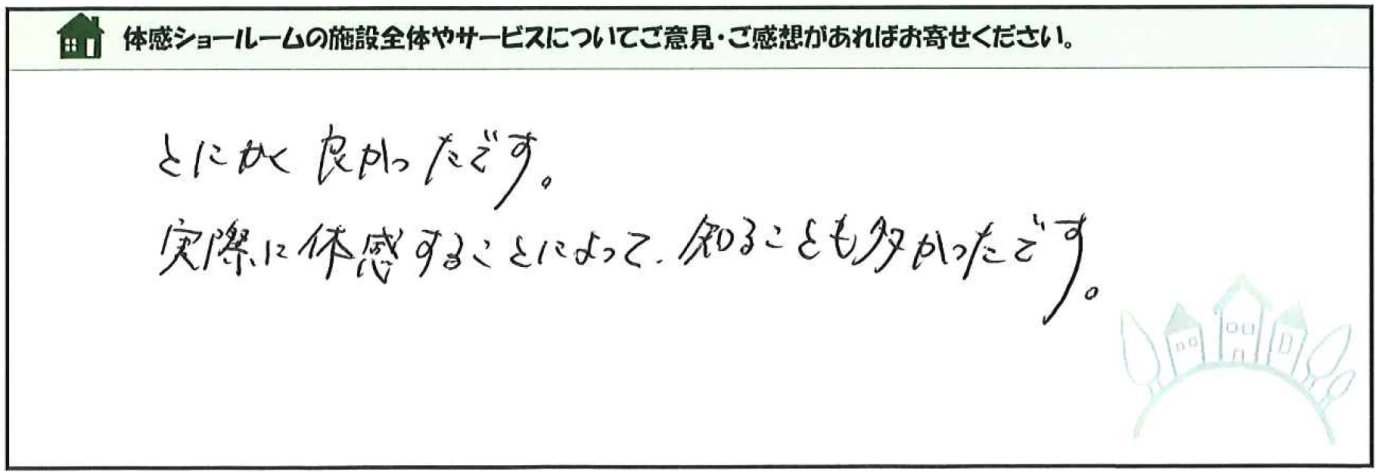 体感ショールームの施設全体やサービスについてご意見・ご感想があればお寄せください。
とにかく良かったです。
実際に体感することによって、知ることも多かったです。